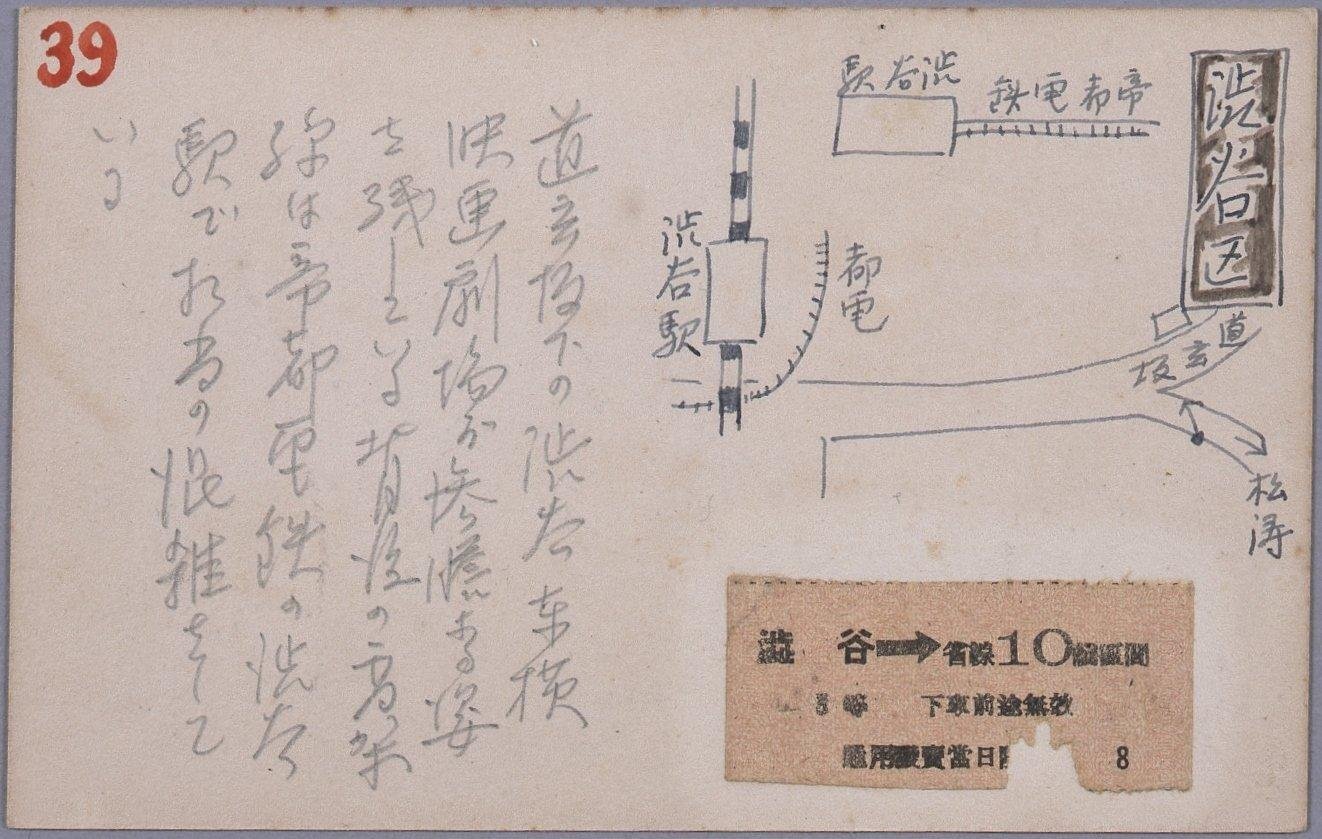 39
渋谷区
帝都電鉄
渋谷駅
渋谷駅
都電
道玄坂
松濤
道玄坂下の渋谷東横
映画劇場が惨憺たる姿
を残している背後の高架
線は帝都電鉄の渋谷
駅で相当の混雑をして
いる
澁谷➡省線10錢區間
3等 下車前途無效
通用發賣當日限
8